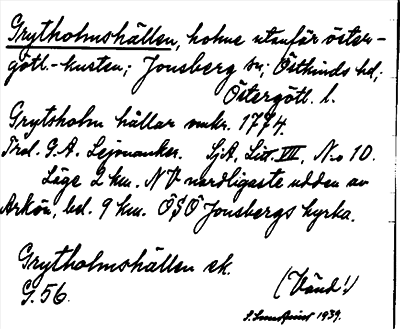 Grytholmshällen, holme utanför öster-
götl.-kusten; Jonsberg sn; Östkinds hd,
Östergötl. l.
Grytsholm hällar omkr. 1774.
Trol. G.A. Lejonanker. SjA, Litt. VII, No 10.
Läge 2 km. NV nordligaste udden av
Arkön, bel. 9 km. ÖSÖ Jonsbergs kyrka.
Grytholmshällen ek.
G. 56.
(Vänd!)
1939.